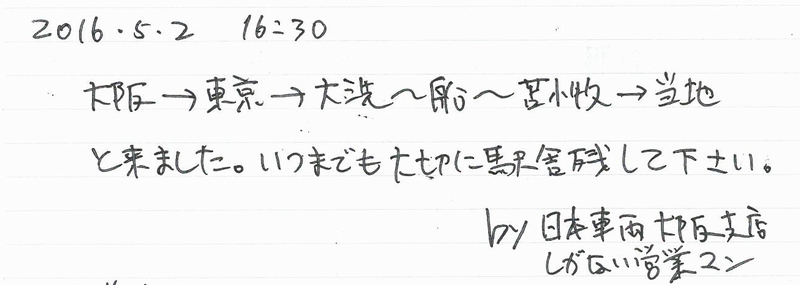 2016.5.2 16:30
大阪→東京→大洗〜船〜苫小牧→当地
と来ました。いつまでも大切に駅舎残して下さい。
by 日本車両大阪支店
しがない営業マン